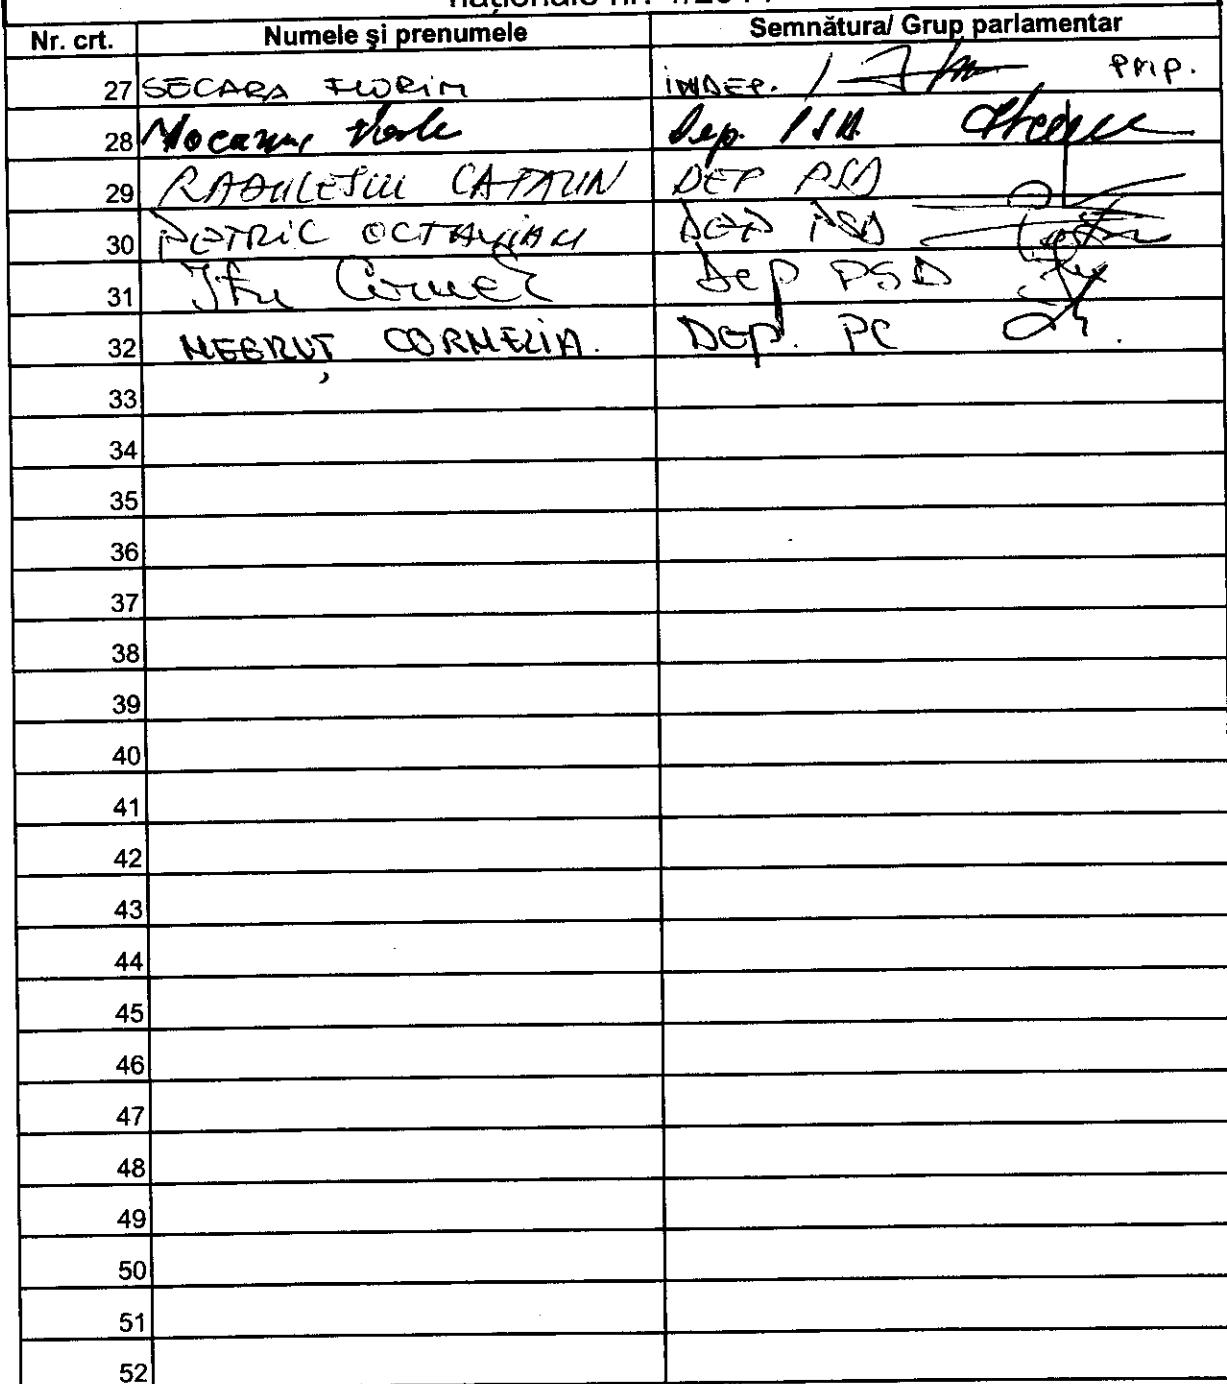 naționale nr. 1/2011
Nr. crt. Numele şi prenumele Semnătura/ Grup parlamentar
27 SECARA FLORIN INDEP. / PMP.
28 Mocanu Vasile Dep. PSD.
29 RADULESCU CATALIN DEP PSD
30 PETRIC OCTAVIAN DEP PSD
31 Itu Cornel Dep PSD
32 NEGRUȚ CORNELIA. DEP. PC
33
34
35
36
37
38
39
40
41
42
43
44
45
46
47
48
49
50
51
52